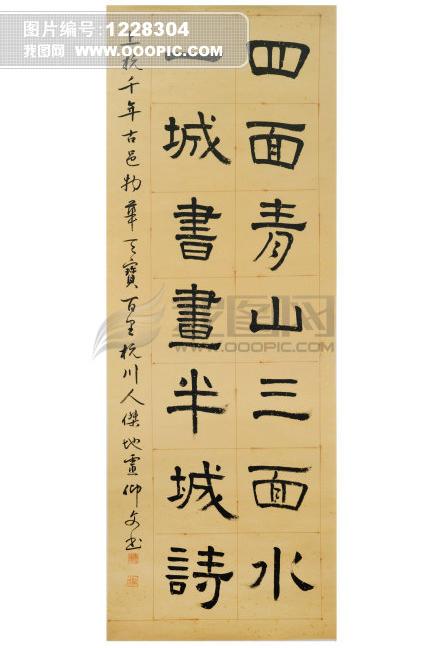 图片编号:1228304
来源:www.OOOPIC.com
四面青山三面水
一城書畫半城詩
上杭千年古邑物華天寶百里杭川人傑地靈仰文书
我图网
WWW.OOOPIC.COM